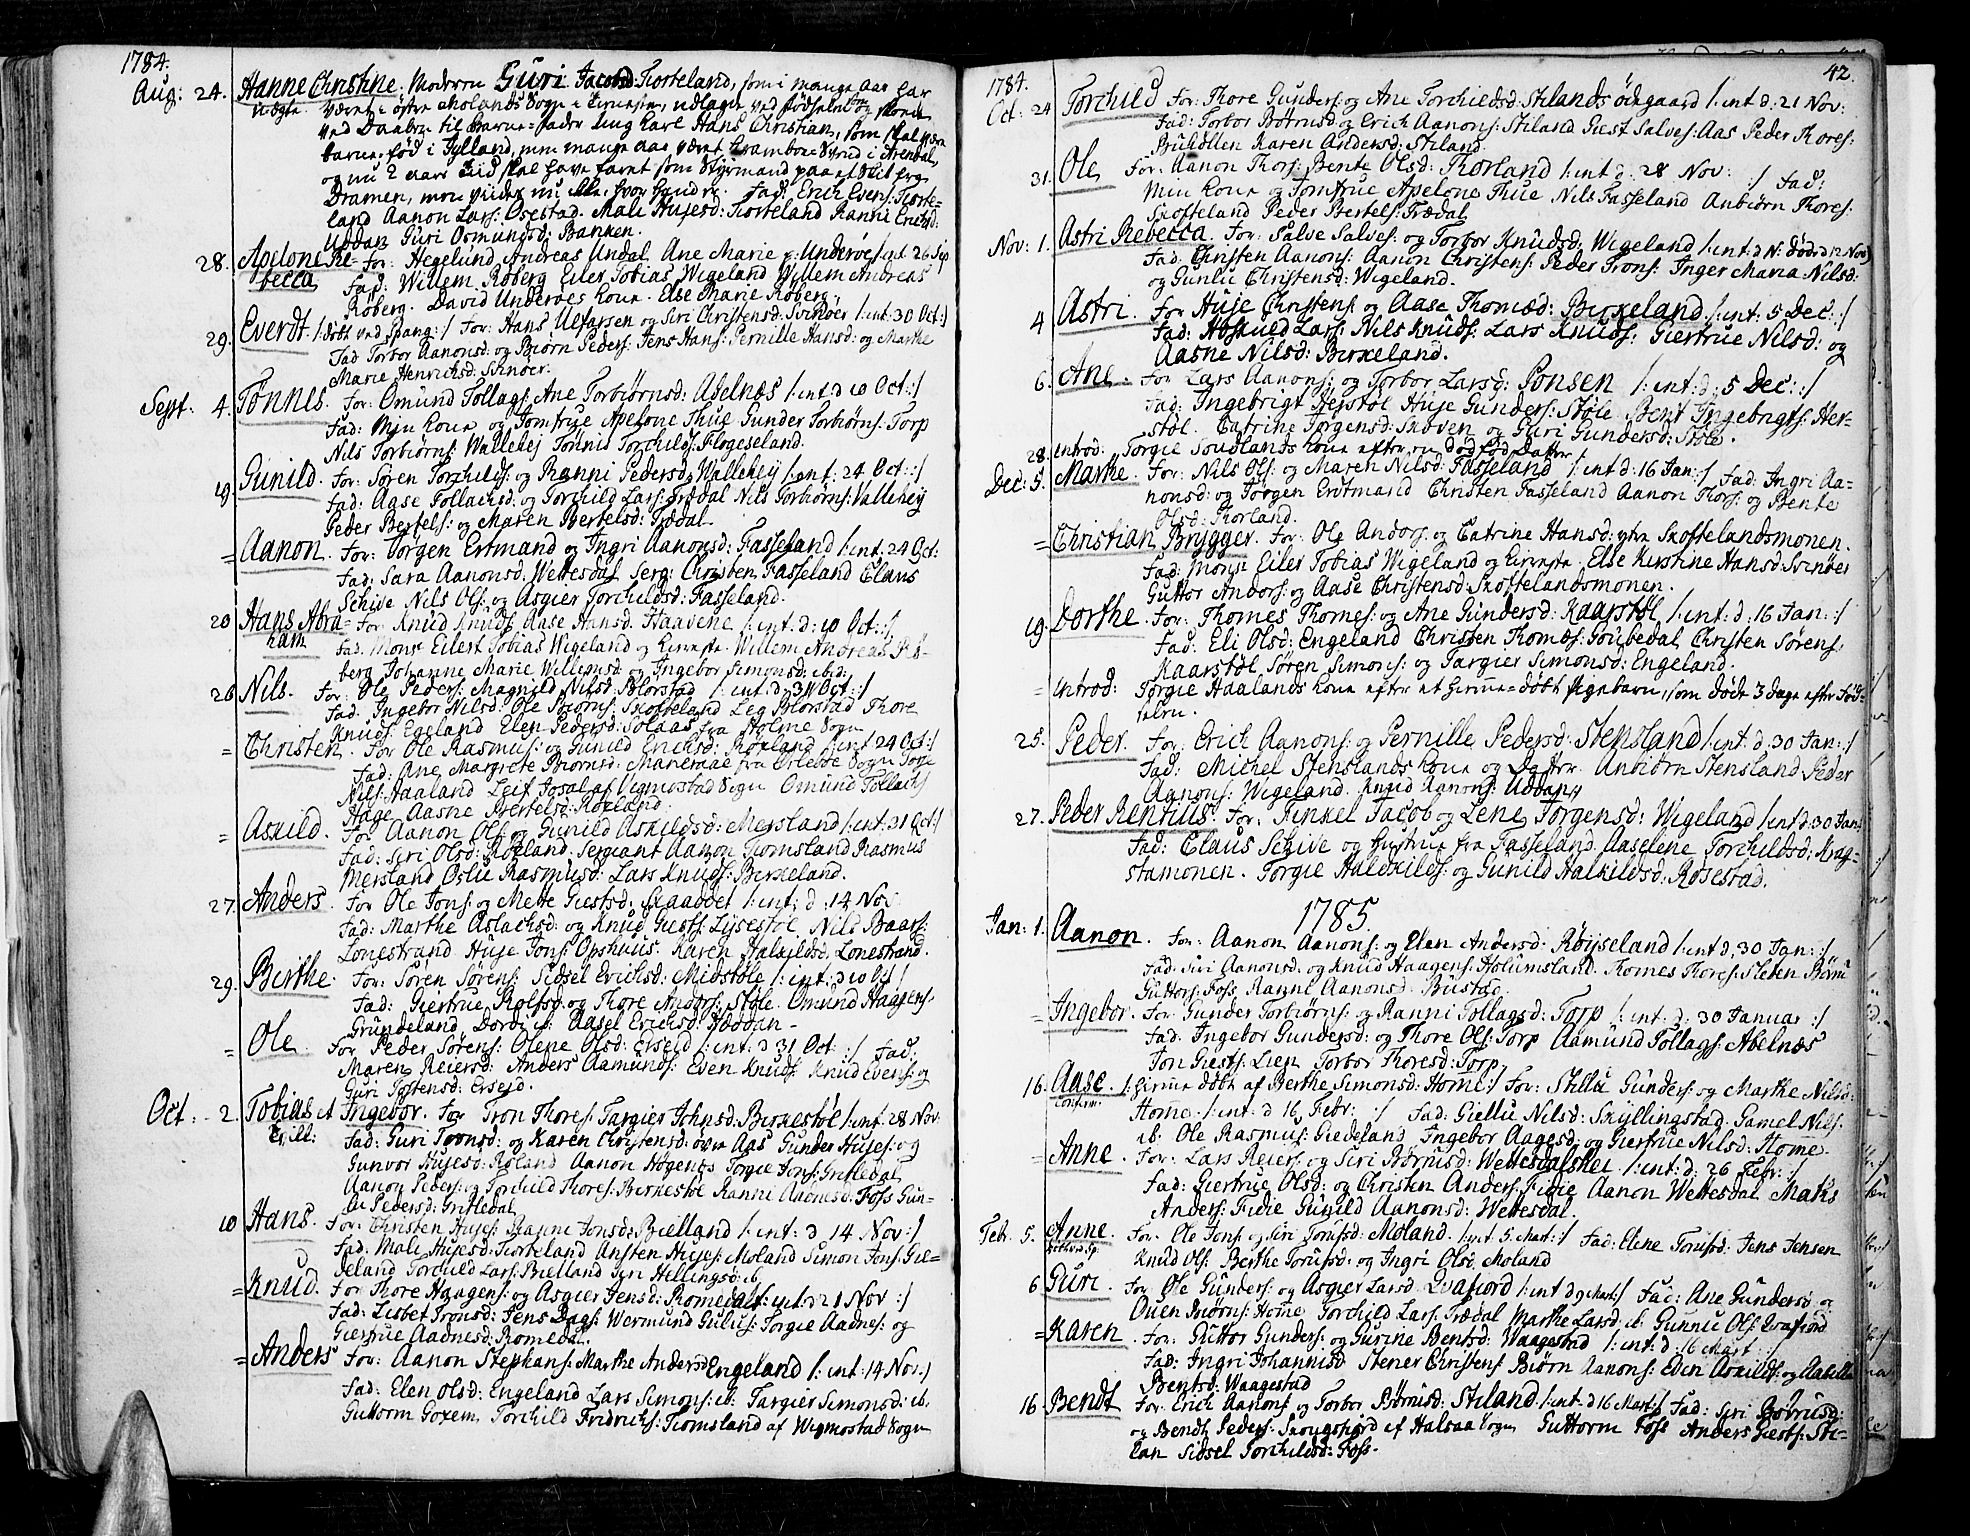 1784.
Aug: 24. Hanne Christine, Moderen Guri Jacobsd: Tiorteland, som i mange Aar har
uægte
ved til Barne-Fader ung Karl Hans Christian, som skal være
barne-fød i Jylland, men mange aar været i Arendal,
og nu 2 aars Tid skal have faret som Styrmand paa et Skib fra
Dramen, men vides nu ikke, hvor Fad: Erich Evens: Tiorte-
land Aanon Lars: Osestad. Mali Hujesd: Tiorteland Ranni Erichsd:
Uddan Guri Osmundsd: Banken.
28. Apelone Re- For: Hegelund Andreas Undal, Ane Marie Underøe /: int 26 Sep
becca Fad: Willem Røberg Eiler Tobias Wigeland Willem Andreas
Røberg. David Underøes Kone. Else Marie Røberg.
29. Everdt /: døbt ved Spang: / For: Hans Ulfarsen og Siri Christensd: Svinøer /: int: 30 Oct: /
Fad Torbor Aanonsd: og Biørn Peders: Jens Hans: Pernille Hansd: og Marthe
Marie Henrichsd: Svinøer.
Sept: 4. Tønnes. For: Omund Tollags: Ane Torbiørnsd: Abelnæs /: int: d 10 Oct: /
Fad: Min Kone og Jomfrue Apelone Thue Gunder Torbiørns: Torp
Nils Torbiørns: Wallehej Tønnis Torchilds: Flogeseland.
19. Gunild. For: Søren Torchilds: og Ranni Pedersd: Wallehej /: int: 24 Oct: /
Fad: Aase Tollachsd: og Torchild Lars: Trædal Nils Torbiørns: Vallehej
Peder Bertels: og Maren Bertelsd: Trædal
= Aanon. For: Jørgen Ertmand og Ingri Aanonsd: Fasseland /: int: 24 Oct:
Fad: Sara Aanonsd: Wettesdal Serg: Christen Fasseland Claus
Schive Nils Ols: og Asgier Torchildsd: Fasseland.
20 Hans Abra- For: Knud Knuds: Aase Hansd: Haavene /: int: d: 10 Oct: /
ham Fad. Mons: Eilert Tobias Wigeland og Kieriste. Willem Andreas Rø-
berg Johanne Marie Willemsd: og Ingebor Simonsd: ibid:
26 Nils. For: Ole Peders: Magnild Nilsd: Blørstad /: int: d: 31 Oct: /
Fad. Ingebor Nilsd: Ole Biørns: Skofteland Leg Blørstad Thore
Knuds: Egeland Elen Pedersd: Solaas fra Holme Sogn
= Christen. For Ole Rasmus: og Gunild Erichsd: Røxland /: int 24 Oct: /
Fad: Ane Margrete Biørnsd: Manemae fra Sogn Torje
Nils: Haaland Leif Fosal af Wigmostad Sogn Omund Tollachs
Hage Aasne Bertelsd: Røxland.
= Askild. For Aanon Ols: og Gunild Askildsd: Mersland /: int: 31 Oct: /
Fad: Siri Olsd: Røxland. Sergiant Aanon Tiomsland Rasmus
Mersland Oslu Rasmusd: Lars Knuds: Birkeland.
27. Anders. For Ole Jons: og Mette Giestsd: Skaadet /: int: d: 14 Nov:
Fad: Marthe Aslachsd: og Knud Giests: Lysestøl Nils Baars:
Lonestrand Huje Jons: Opshuus. Karen Halkildsd: Lonestrand.
29. Berthe. For: Søren Sørens: Sidsel Erichsd: Midstøle /: int: d 10 Oct: /
Fad: Giertrue Rolfsd: og Thore Andors: Støle. Omund Haagens:
Grundeland, Dordi ib: Aasel Erichsd: Fieddan.
= Ole. For Peder Sørens: Olene Olsd: Erseid /: int: d 31 Oct: / Fad:
Maren Reiersd: Anders Aamunds: Even Knuds: Knud Evens: og
Guri Tostensd: Erseid.
Oct: 2. Tobias et Ingebor. For Tron Thores: Targier Jehnsd: Birkestøl /: int: 28 Nov:
Gemill: Fad: Guri Tronsd: og Karen Christensd: øvre Aas Gunder Hujes: og
Gunvor Hujesd: Røland Aanon Høgents: Torgie Jons: Gritledal
Aanon Peders: og Torchild Thores: Birkestøl Ranni Aadnesd: Foss Gun-
 Pedersd: Gritledal
10 Hans. For: Christen Hujes: Ranne Jonsd: Bielland /: int: d 14 Nov: /
Fad: Mali Hujesd: Tiorteland Ansten Hujes: Moland Simon Jons: Gie-
deland Torchild Lars: Bielland Siri Hellingsd: ib.
= Knud. For Thore Haagens: og Asgier Jensd: Romedal /: int: d 21 Nov: /
Fad: Lisbet Tronsd: Jens Dags: Wermund Guluf: Torgie Aadnes: og
Giertrue Aadnesd: Romedal.
= Anders For: Aanon Stephans: Marthe Andersd: Engeland /: int: 14 Nov: /
Fad: Elen Olsd: Engeland Lars Simons: ib: Targier Simonsd: ib.
Guttorm Goxem, Torchild Fridrichs: Tiomsland af Wigmostad Sogn
42.
1784.
Oct: 24 Torchild For: Thore Gunders: og Ane Torchildsd: Stilands ødegaard /: int: d: 21 Nov:
Fad: Torbor Børrusd: og Erich Aanons: Stiland Giest Salves: Aas Peder Thores:
Birkollen Karen Andersd: Stiland.
31. Ole For: Aanon Thors: Bente Olsd: Thorland /: int: d: 28 Nov: / Fad:
Min Kone og Jomfrue Apelone Thue Nils Fasseland Anbiørn Thores:
Skofteland Peder Bertels: Trædal
Nov: 1. Astri Rebecca. For: Salve Salves: og Torbor Knudsd: Wigeland /: int: d N: Død d 12 Nov:
Fad: Christen Aanons: Aanon Christens: Peder Trons: Inger Maria Nilsd:
og Gunlu Christensd: Wigeland.
4 Astri. For Huje Christens: og Aase Thomæd: Birkeland /: int: 5 Dec: /
Fad: Hoskuld Lars: Nils Knuds: Lars Knuds: Giertrue Nilsd: og
Aasne Nilsd: Birkeland.
6. Ane. For Lars Aanons: og Torbor Larsd: Ponsen /: int: d: 5 Dec: /
Fad: Ingebrigt Herstøl Huje Gunders: Støle Bent Ingebrigts: Her-
støl. Catrine Jørgensd: Skoven og Guri Gundersd: Støle.
28. Introd: Torgie Soudlands Kone efter en dødfød Datter
Dec: 5. Marthe. For: Nils Ols: og Maren Nilsd: Fasseland /: int: d: 16 Jan: / Fad: Ingri Aa-
nonsd: og Jørgen Ertmand Christen Fasseland Aanon Thors: og Bente
Olsd: Thorland.
= Christian Brygger. For: Ole Andors: og Catrine Hansd: ytre Skoftelandsmonen.
Fad: Mons: Eiler Tobias Wigeland og Kieriste. Else Kirstine Hansd: Svinøer
Guttor Andors: og Aase Christensd: Skoftelandsmonen.
19. Dorthe. For: Thomes Thomes: og Ane Gundersd: Kaarstøl /: int: d. 16 Jan: /
Fad: Eli Olsd: Engeland Christen Thomæs: Goubedal Christen Sørens:
Kaarstøl Søren Simons: og Targier Simonsd: Engeland.
= Introd: Torgie Haalands Kone efter et hieme-døbt Pigebarn, som døde 3 dage efter Fød-
selen.
25. Peder. For: Erich Aanons: og Pernille Pedersd: Stensland /: int: d. 30 Jan: /
Fad: Michel Stenslands Kone og Datter. Anbiørn Stensland Peder
Aanons: Wigeland. Knud Aanons: Uddan
27. Peder Rentius. For: Finkel Jacob og Lene Jørgensd: Wigeland /: int: d: 30 Jan:
Fad: Claus Schive og Hustrue fra Fasseland Aaselene Torchildsd: Krag-
stamonen. Torgie Halckilds: og Gunild Halkildsd: Rosestad.
1785.
Jan: 1. Aanon. For: Aanon Aanons: og Elan Andersd: Røijseland /: int: d. 30 Jan: /
Fad: Siri Aanonsd: og Knud Haagens: Holumsland. Thomes Thores: Sleten Børni
Guttors: Foss Ranni Aanonsd: Bustad.
= Ingebor. For: Gunder Torbiørns: og Ranni Tollagsd: Torp /: int: d: 30 Januar: /
Fad: Ingebor Gundersd: og Thore Ols: Torp Aamund Tollags: Abelnæs
Jon Giests: Lien Torbor Thoresd: Torp
16. Aase. /: hieme døbt af Berthe Simonsd: Home: / For: Stillu Gunders: og Marthe Nilsd:
Confirm. Home /: int: d 16 Febr: / Fad: Giellu Nilsd: Skyllingstad Gamel Nils:
ib: Ole Rasmus: Giedeland Ingebor Aagesd: og Giertrue Nilsd: Home
= Anne. For: Lars Reiers: og Siri Børrusd: Wettesdalshei /: int: d: 26 Febr: /
Fad: Giertrue Olsd: og Christen Anders: Fidie Aanon Wettesdal Mats
Anders: Fidie Gunild Aanonsd: Wettesdal.
Feb: 5. Anne. For: Ole Jons: og Siri Tørrisd: Moland. /: int: 5. Mart: / Fad: Elene Tørrisd: Jens Jensen
Knud Ols: Berthe Torrisd: og Ingri Olsd: Moland
6 Guri. For Ole Gunders: og Asgier Larsd: Qvafiord /: int: d 9 Mart: / Fad: Ane Gundersd: og
Ouen Biørns: Home Torchild Lars: Trædal Marthe Larsd: ib: Gunnie Ols: Qvafiord
= Karen For: Guttor Gunders: og Gurine Bentsd: Waagestad /: int: d: 16 Mart: /
Fad: Ingri Johannisd: Stener Christens: Biørn Aanons: Eden Askilds: og Aabella
Bentsd: Waagestad
16 Bendt For: Erich Aanons: og Torbor Børrusd: Stiland /: int: d 16 Mart: / Fad: Siri Børrusd:
og Bendt Peders: Skougsfiord af Halsaa Sogn Guttorm Foss Anders Giests: Sti-
lan Sidsel Torchildsd: Foss.